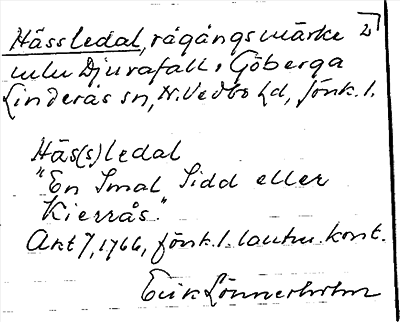 Hässledal, rågångsmärke 2)
mlu Djurafall o. Göberga
Linderås sn, N. Vedbo hd, Jönk. l.
Häs(s)ledal
"En Smal Sidd eller
Kierrås."
Akt 7, 1766, Jönk. l. lantm. kont.
Erik Lönnerholm